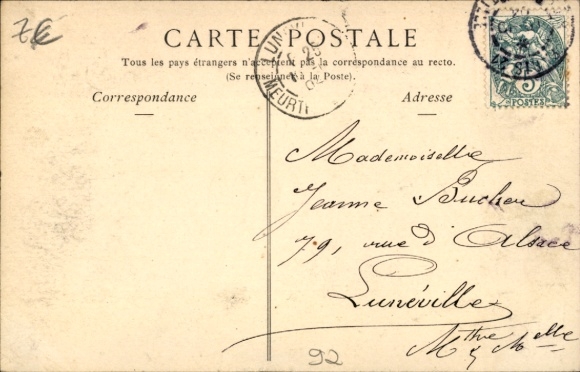 7€
CARTE POSTALE
Tous les pays étrangers n'acceptent pas la correspondance au recto.
(Se renseigner à la Poste).
Correspondance
Adresse
LUN
25
02
MEURT
5
POSTES
Mademoiselle
Jeanne
79, rue d'Alsace
Lunéville
Mthe & Melle
92